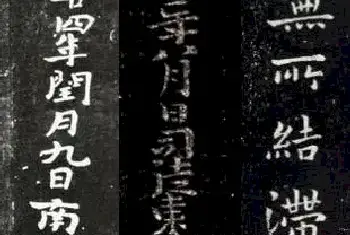 無所結滯
年八月日司法
四年閏月九日南